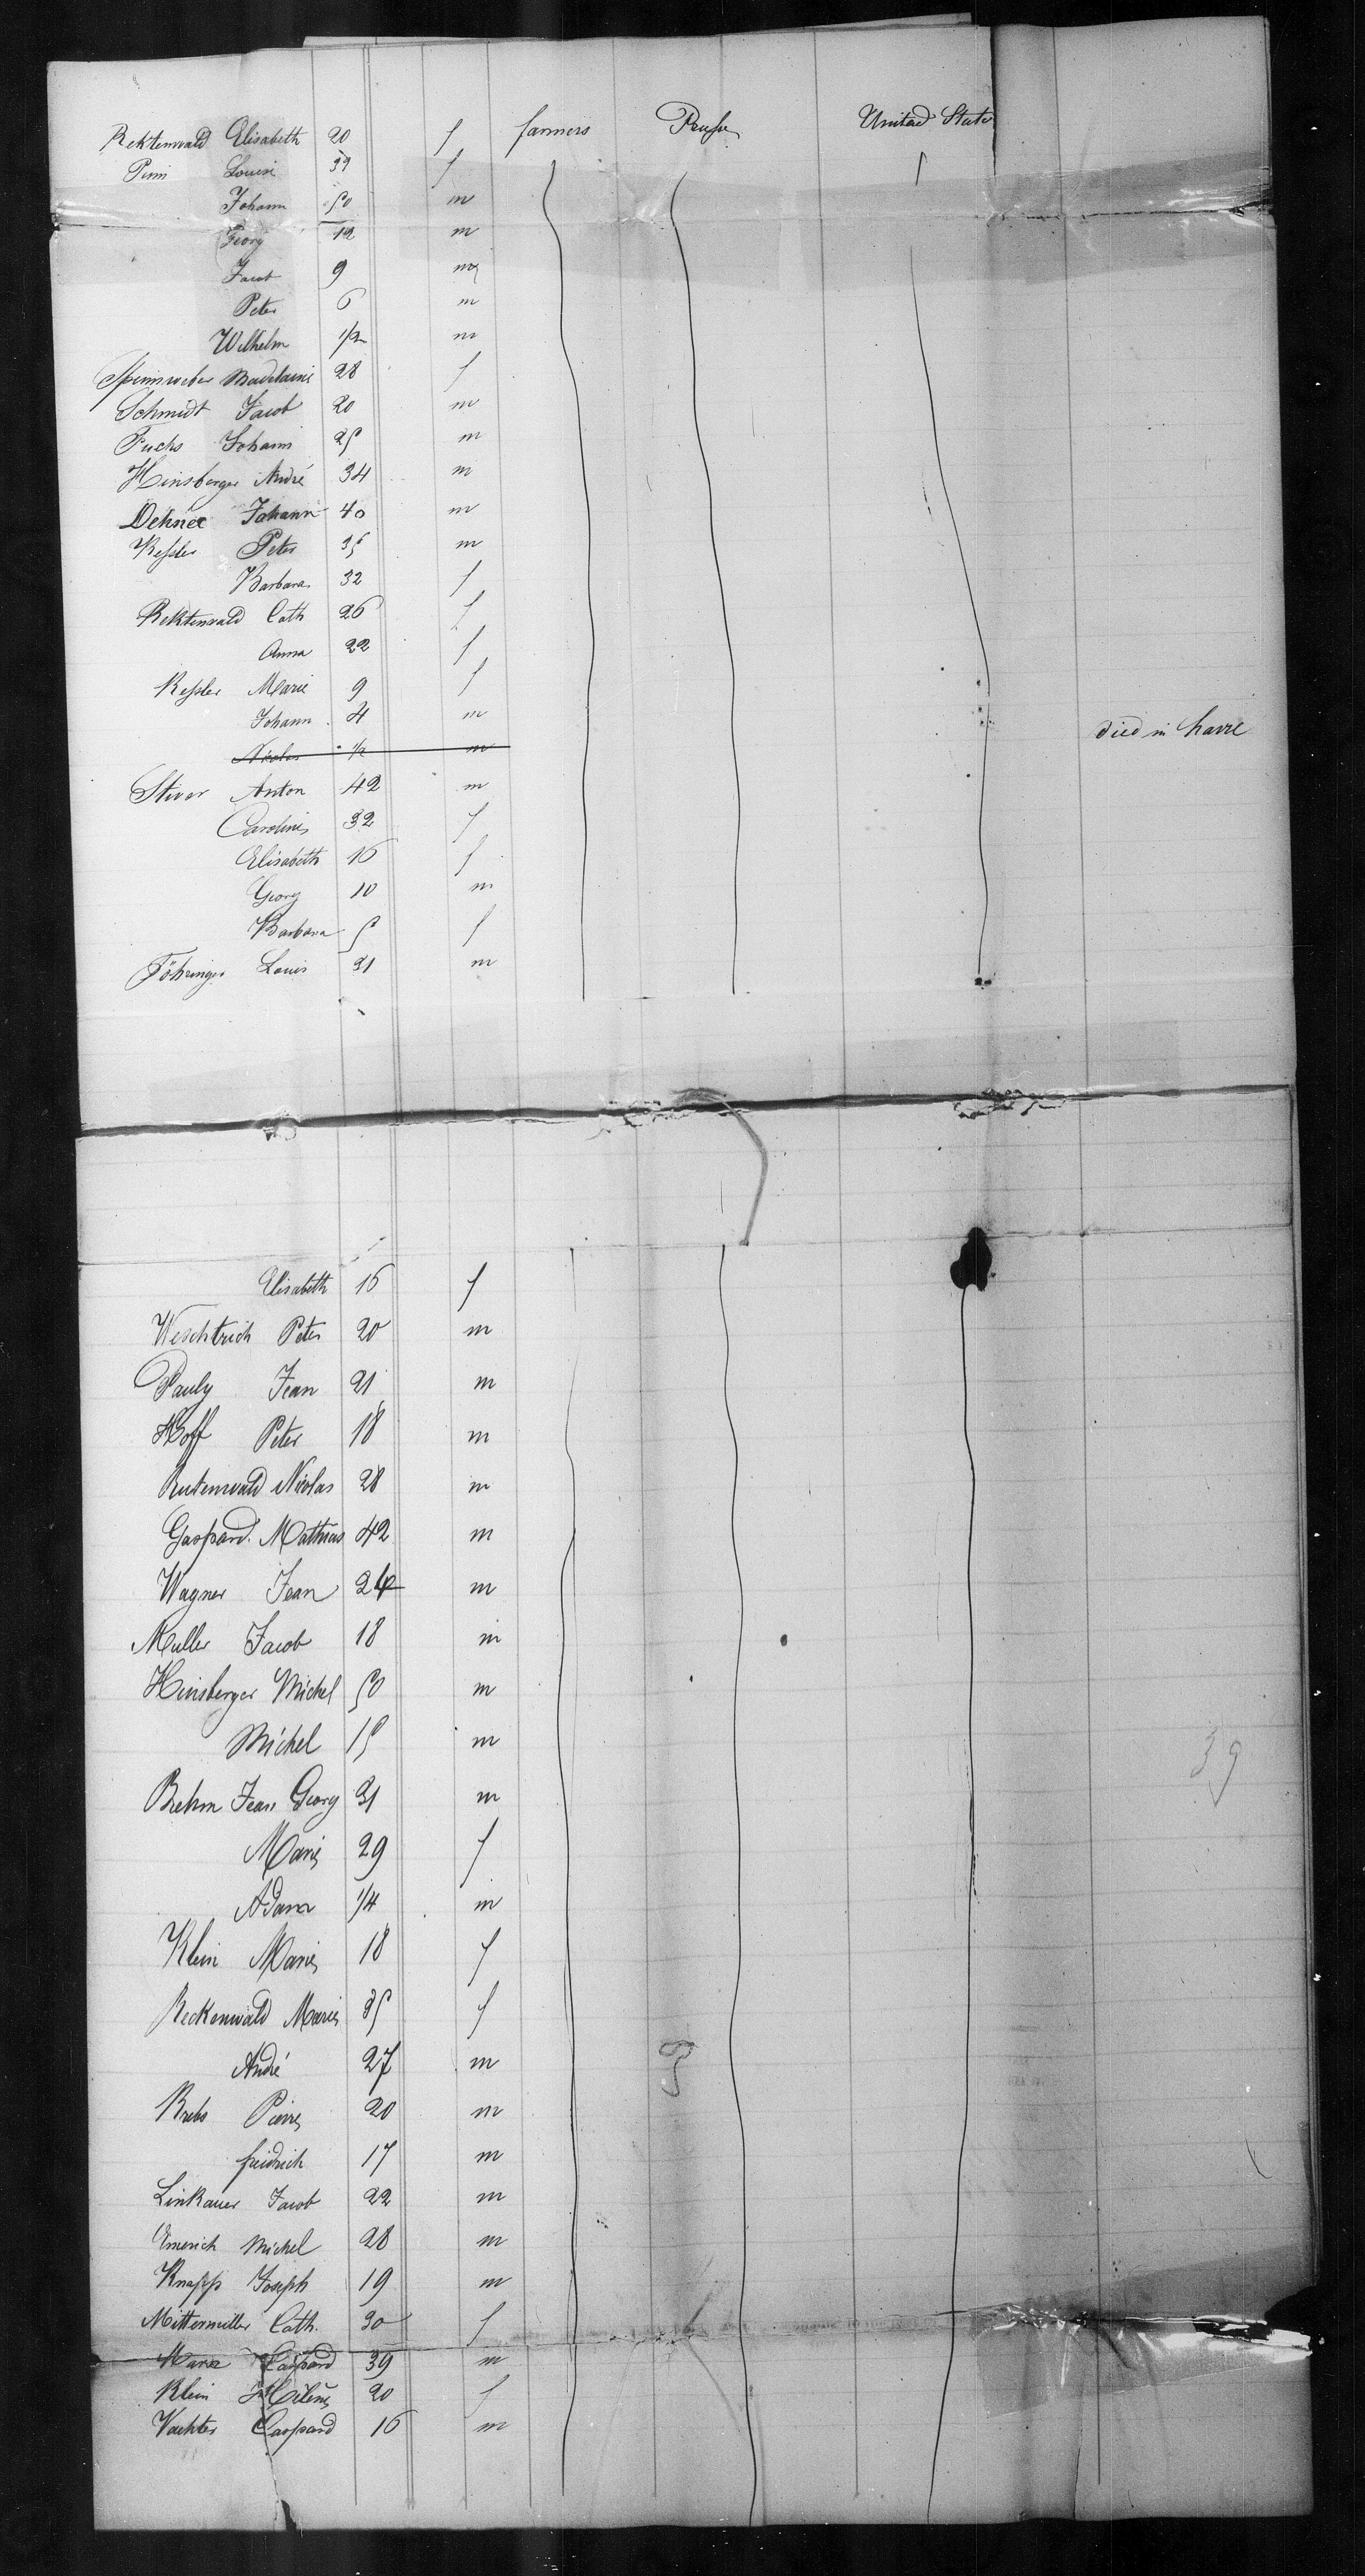 Rektenwald Elisabeth 20 f farmers Prusse United States
Pirri Louise 39 f
Johann 50 m
Georg 12 m
Jacob 9 m
Peter 6 m
Wilhelm 1/2 m
Spinnweber Madelaine 28 f
Schmidt Jacob 20 m
Fuchs Johann 25 m
Hinsberger André 34 m
Dehner Johann 40 m
Kessler Peter 35 m
Barbara 32 f
Rektenwald Cath 26 f
Anna 22 f
Kessler Marie 9 f
Johann 4 m
Nicolas 1/2 m died in havre
Stiver Anton 42 m
Caroline 32 f
Elisabeth 16 f
Georg 10 m
Barbara 5 f
Föhringer Louis 31 m
Elisabeth 16 f
Weschtrich Peter 20 m
Pauly Jean 21 m
Hoff Peter 18 m
Rutenwald Nicolas 28 m
Gaspard Mathias 42 m
Wagner Jean 24 m
Muller Jacob 18 m
Hinsberger Michel 50 m
Michel 15 m
39
Brehm Jean Georg 31 m
Marie 29 f
Adam 1/4 m
Klein Marie 18 f
Reckenwald Marie 35 f
André 27 m
59
Krebs Pierre 20 m
freidrich 17 m
Linkauer Jacob 22 m
Emerich Michel 28 m
Knapp Joseph 19 m
Mittermiller Cath. 30 f
Marx Caspard 39 m
Klein Hélène 20 f
Vachter Caspard 16 m